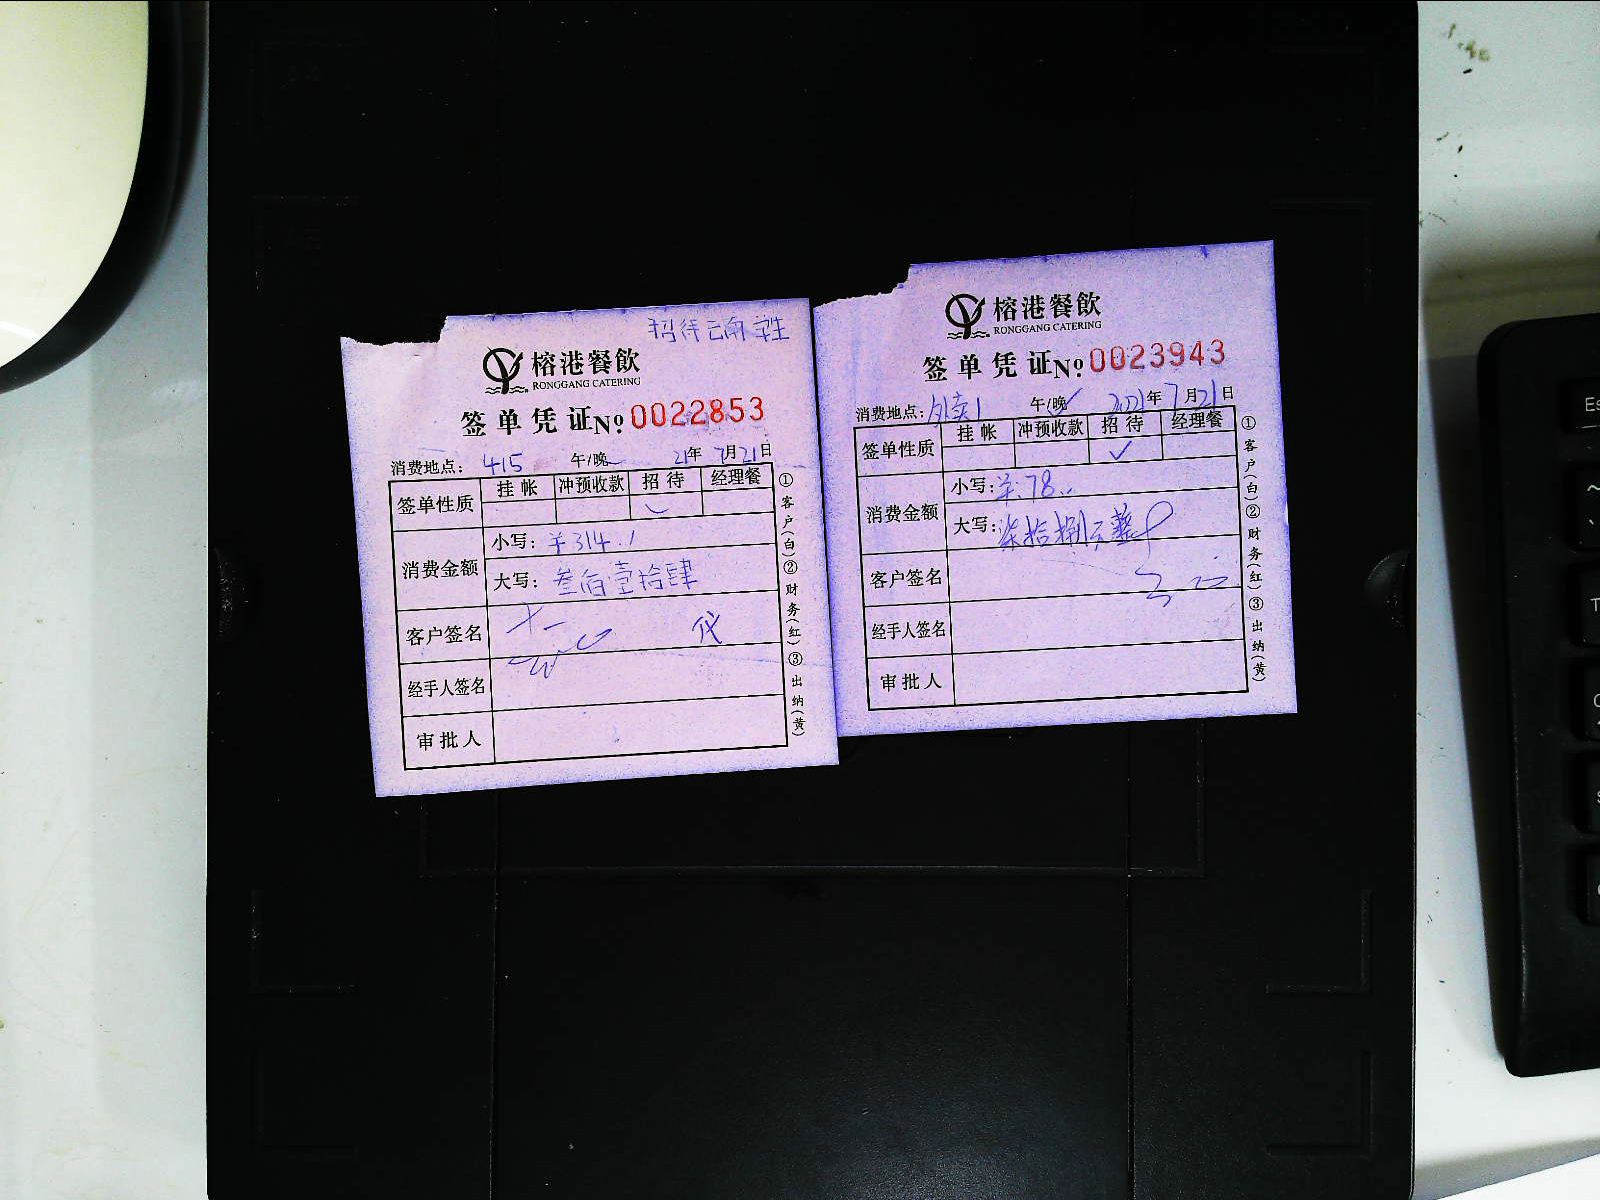 招待云南学生
榕港餐飲
RONGGANG CATERING
签单凭证 No 0022853
消费地点: 415 午/晚 21年7月21日
签单性质 挂帐 冲预收款 招待 经理餐
✓
消费金额 小写: ¥314.
大写: 叁佰壹拾肆
客户签名
经手人签名
审批人
①客户(白)②财务(红)③出纳(黄)
榕港餐飲
RONGGANG CATERING
签单凭证 No 0023943
消费地点: 外卖1 午/晚 ✓ 2021年7月21日
签单性质 挂帐 冲预收款 招待 经理餐
✓
消费金额 小写: ¥:78..
大写: 柒拾捌元整
客户签名
经手人签名
审批人
①客户(白)②财务(红)③出纳(黄)
Es